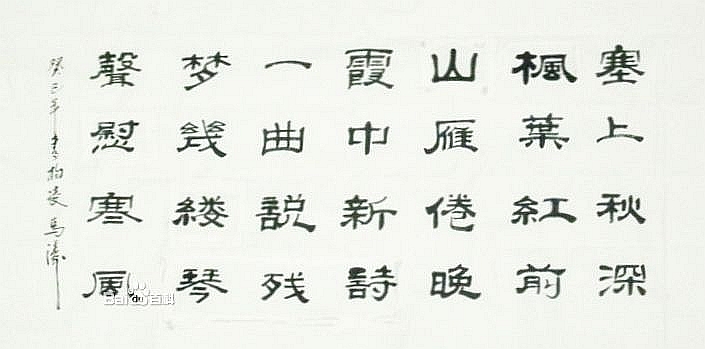 塞上秋深
楓葉紅前
山雁倦晚
霞中新詩
一曲説残
梦幾缕琴
聲慰寒風
癸巳年
馬濤
Bai du 百科